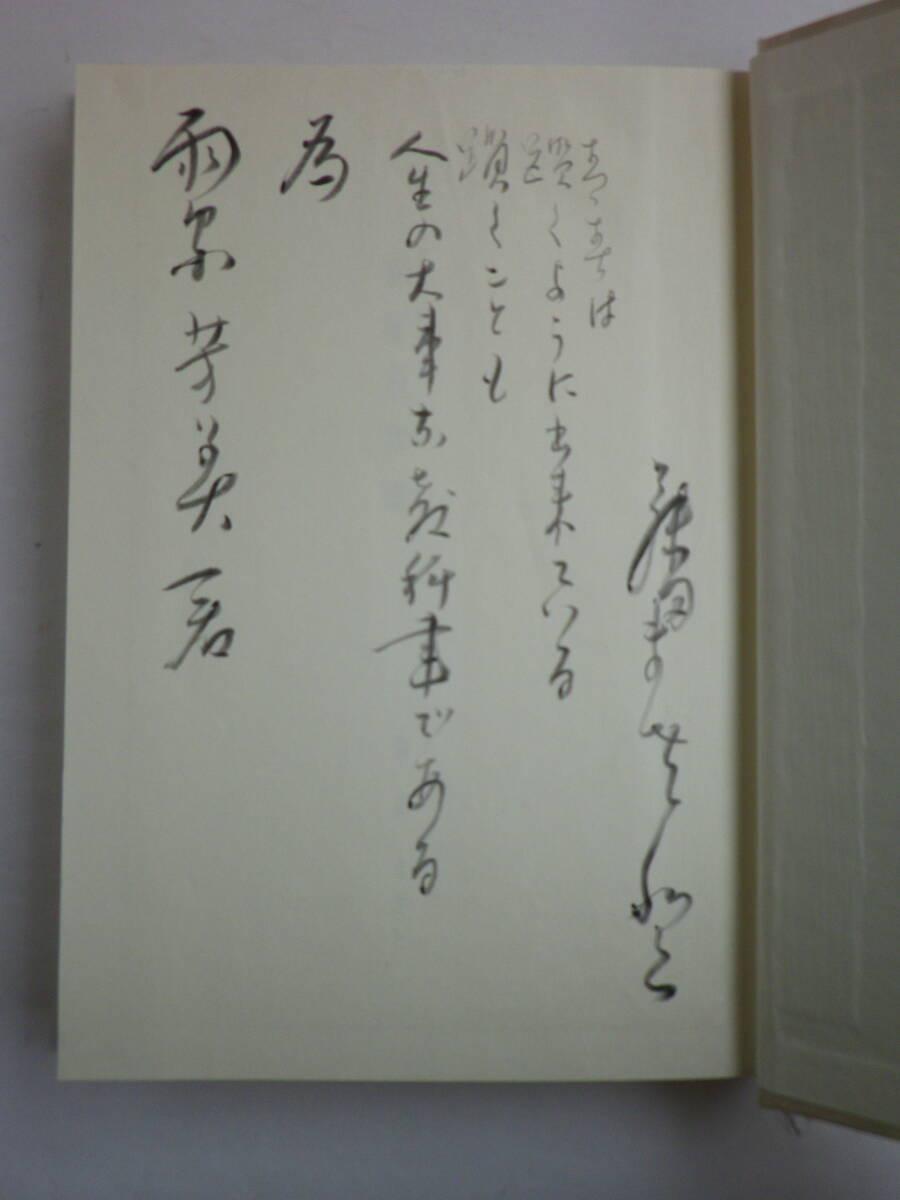 青春は
躓くように出来ている
躓くことも
人生の大事な教科書である
為
芳美君